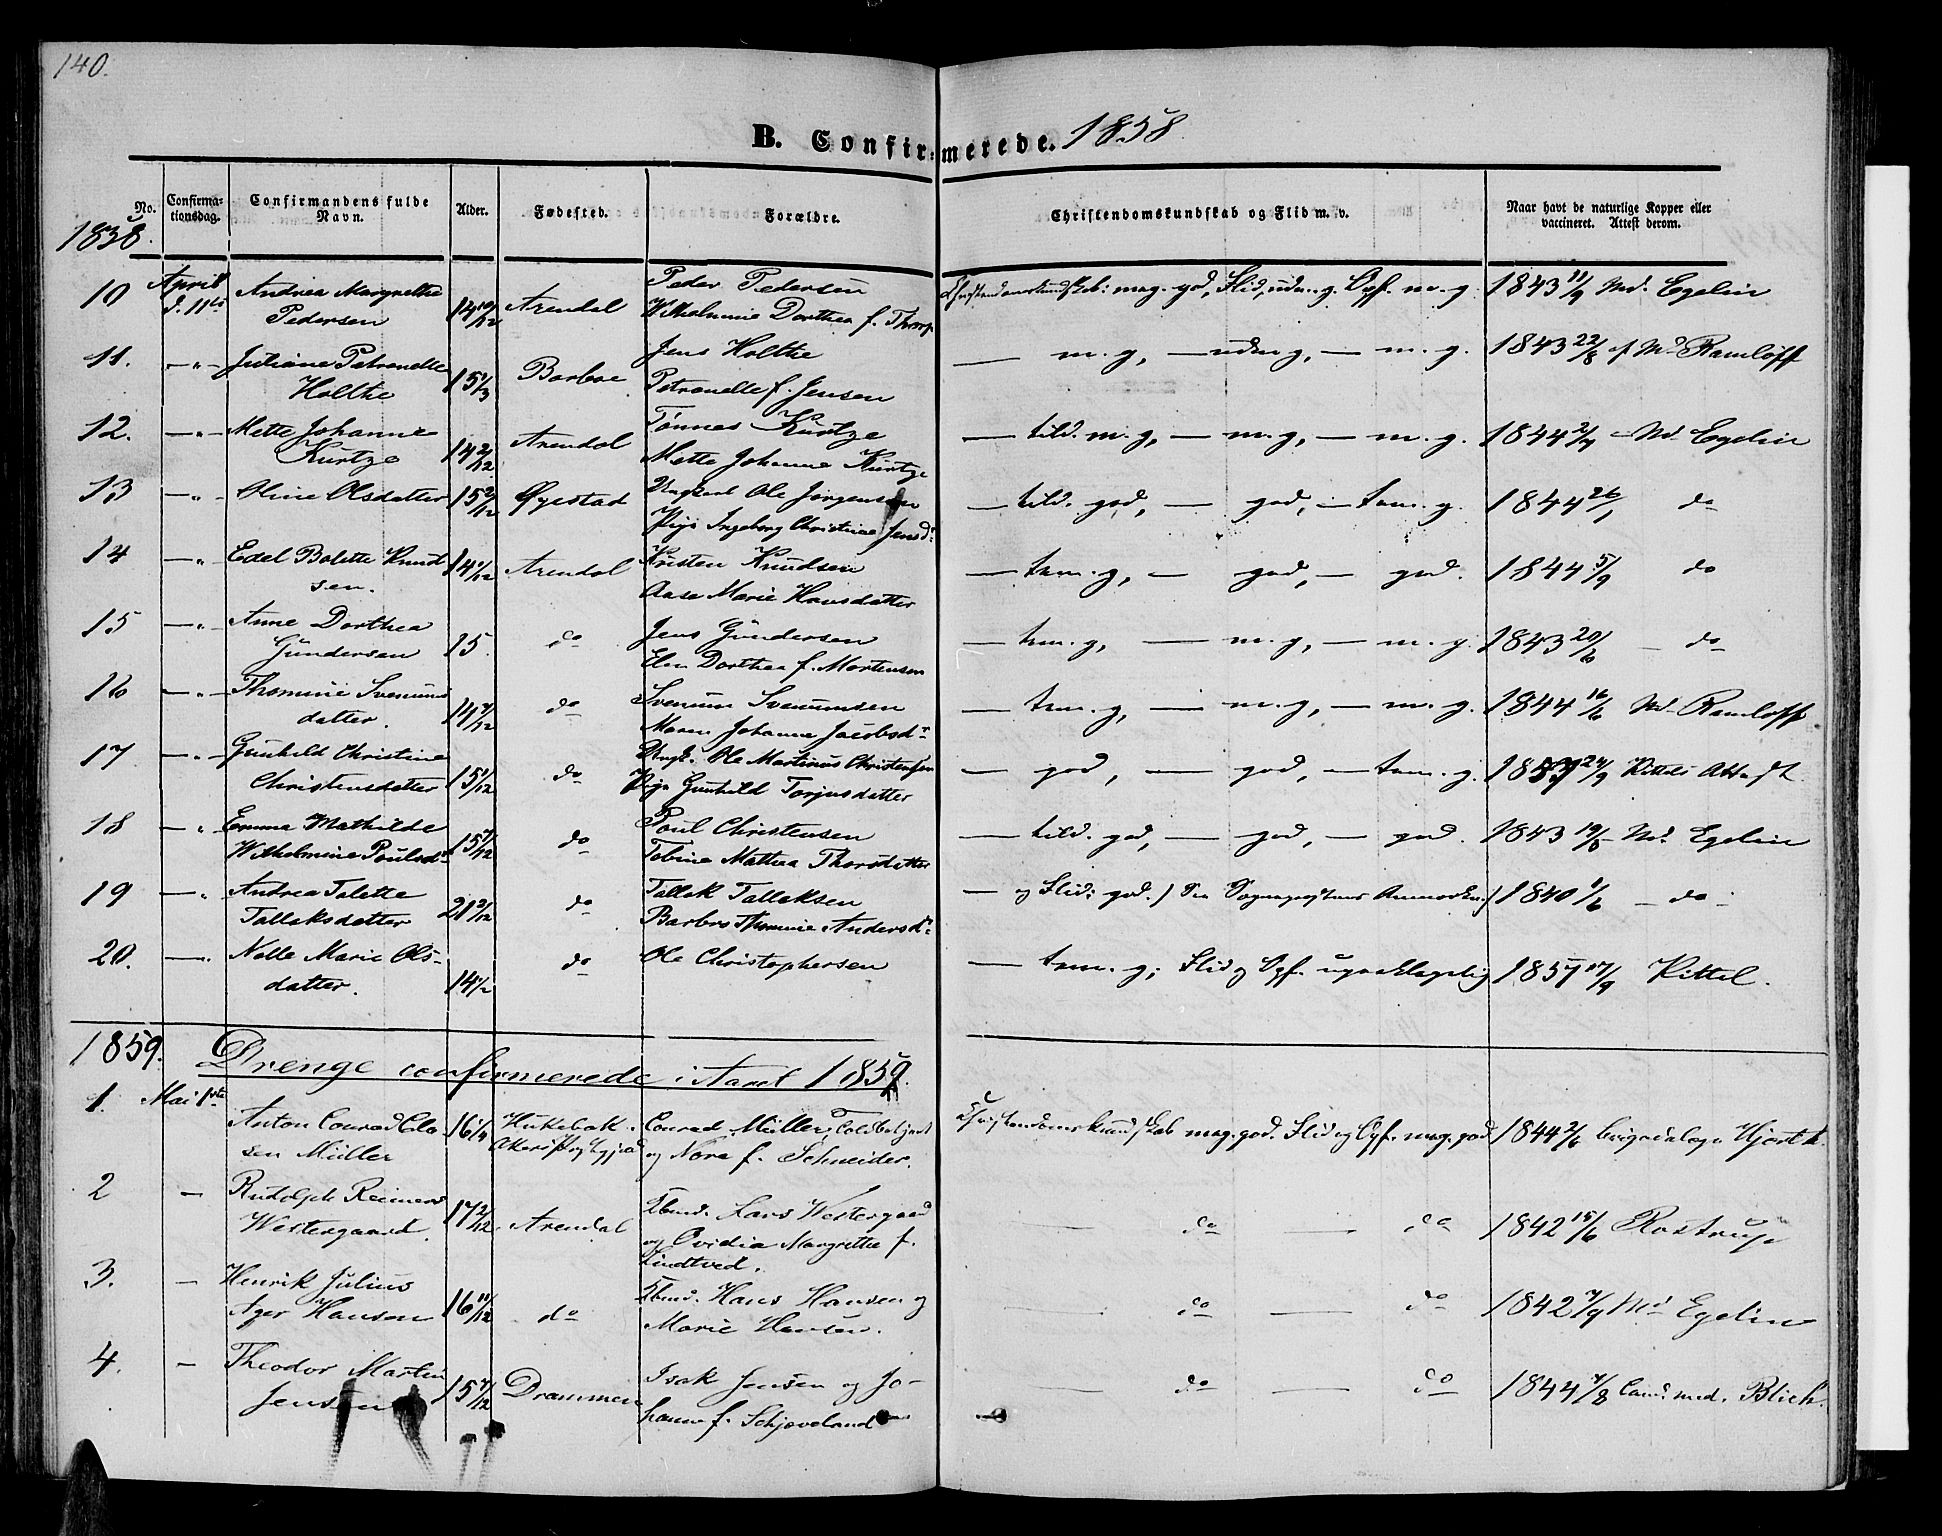 140.
B. Confirmerede. 1858
No.
Confirmationsdag.
Confirmandens fulde Navn.
Alder.
Fødested.
Forældre.
Christendomskundskab og Flid m. v.
Naar havt de naturlige Kopper eller vaccineret. Attest derom.
1858.
10 April d. 11te Andrea Margrethe Pedersen 14 10/12 Arendal Peder Pedersen Wilhelmine Dorthea f. Thorp Christendomskundskab: mag. god, Flid, udm. g. Opf. m. g. 1843 11/9 Md. Egelin
11. —„— Juliane Petronelle Holthe 15 1/3 Barboe Jens Holthe Petronelle f. Jensen — m. g, — udm g, — m. g. 1843 22/8 af Md Ramløff
12. —„— Mette Johanne Kürtze 14 2/12 Arendal Tønnes Kürtze Mette Johanne Kürtze — tild. m. g, — m. g, — m. g. 1844 2/7 – Md Egelin
13 —„— Oline Olsdatter 15 2/12 Øyestad Ungkarl Ole Jørgensen Pige Ingeborg Christine Jensd: — tild. god, — god, — tem. g. 1844 26/1 do
14 —„ Edel Bolette Knudsen. 14 1/12 Arendal Kristen Knudsen Aase Marie Hansdatter — tem. g, — god, — god. 1844 5/9 do
15 —„— Anne Dorthea Gundersen 15. do Jens Gundersen Elen Dorthea f. Mortensen — tem. g, — m. g, — m. g. 1843 20/6 — do
16 —„— Thomine Svenumsdatter. 14 7/12 do Svenum Svenumsen Maren Johanne Jacobsdr — tem. g, — m. g, — m. g. 1844 16/6 Md. Ramløff.
17 —„— Gunhild Christine Christensdatter 15 1/12 do Ungk. Ole Martinus Christensen Pige Gunhild Torjusdatter — god, — god, — tem. g. 1857 24/9 Kittels Attest
18 —„ Emma Mathilde Wilhelmine Poulsdr 15 7/12 do Poul Christensen Tobine Mathea Thorsdatter — tild. god, — god, — god. 1843 19/8 Md. Egelin
19 —„ Andrea Talette Tallaksdatter 21 2/12 do Tallak Tallaksen Barbro Thomine Andersd: — og Flid: god. 1840 1/6 — do
20. —„— Nelle Marie Olsdatter. 14 1/2 do Ole Christophersen — tem. g; Flid og Opf. upaaklagelig 1857 17/9 Kittel.
1859. Drenge confirmerede i Aaret 1859.
1. Mai 1ste Anton Conrad Clasen Müller 16 1/4 Conrad Müller, og Nora f. Schneider. Christendomskundskab mag. god. Flid og Opf. mag. god 1844 2/6 Brigadelæge Hjorth.
2 — Rudolph Reimers Westergaard. 17 2/12 Arendal Lars Westergaard og Ovidia Margrethe f. Lindtved. — do — do 1842 15/6 Rostrup
3. — Henrik Julius Ager Hansen 16 11/12 do Hans Hansen og Marie Hansen. — do — do 1842 7/9 Md Egelin
4. — Theodor Martin Jensen 15 7/12 Drammen Isak Jensen og Johanne f. Schjøveland — do — do 1844 7/8 Cand. med. Blich.